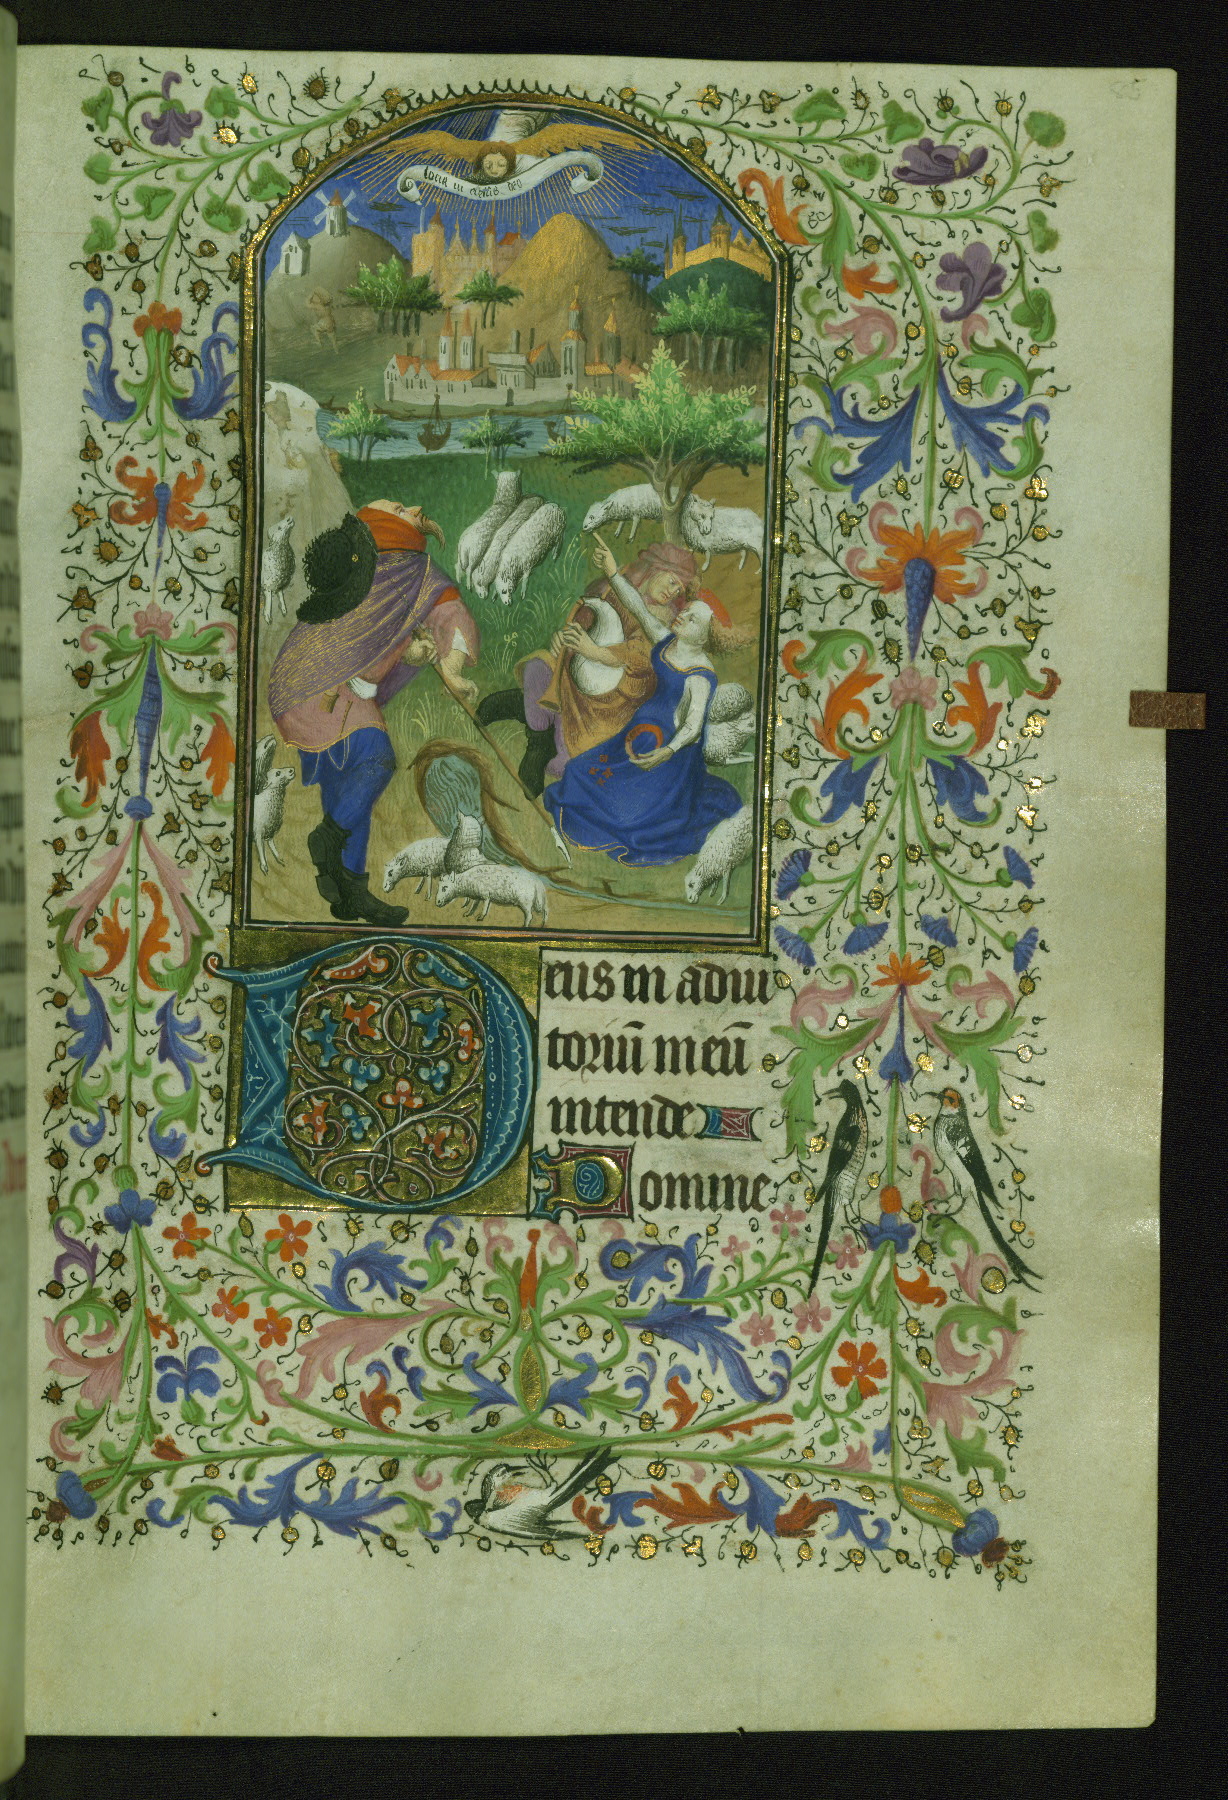 in excelsis deo
Deus in adiu
toriū meū
intende
Domine